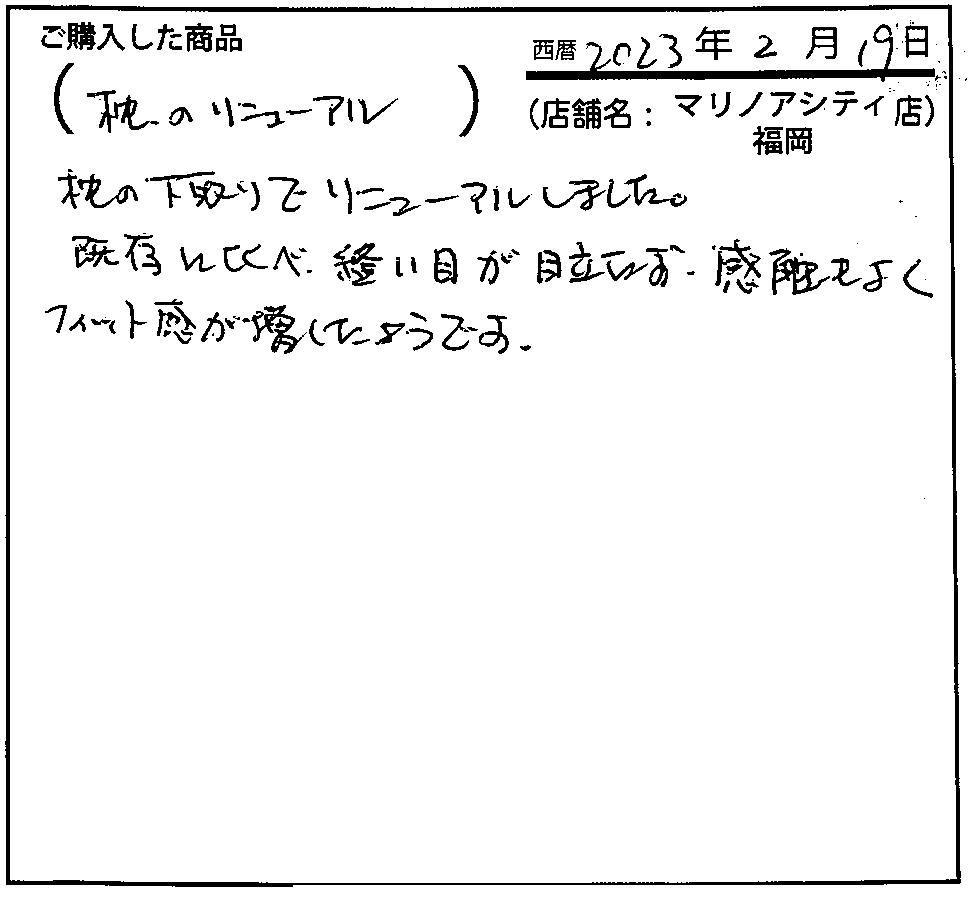 ご購入した商品
西暦 2023 年 2 月 19 日
(枕のリニューアル)
(店舗名：マリノアシティ福岡店)
枕の下取りでリニューアルしました。
既存に比べ、縫い目が目立たず、感触もよく
フィット感が増したようです。